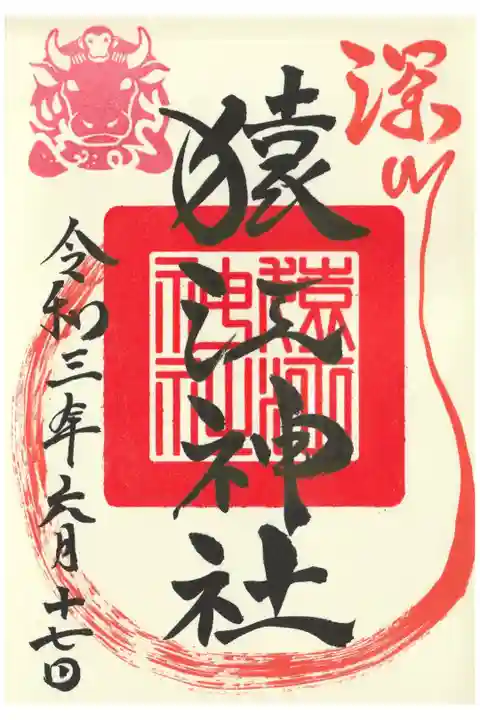 深川
猿江神社
猿江
神社
令和三年六月十七日